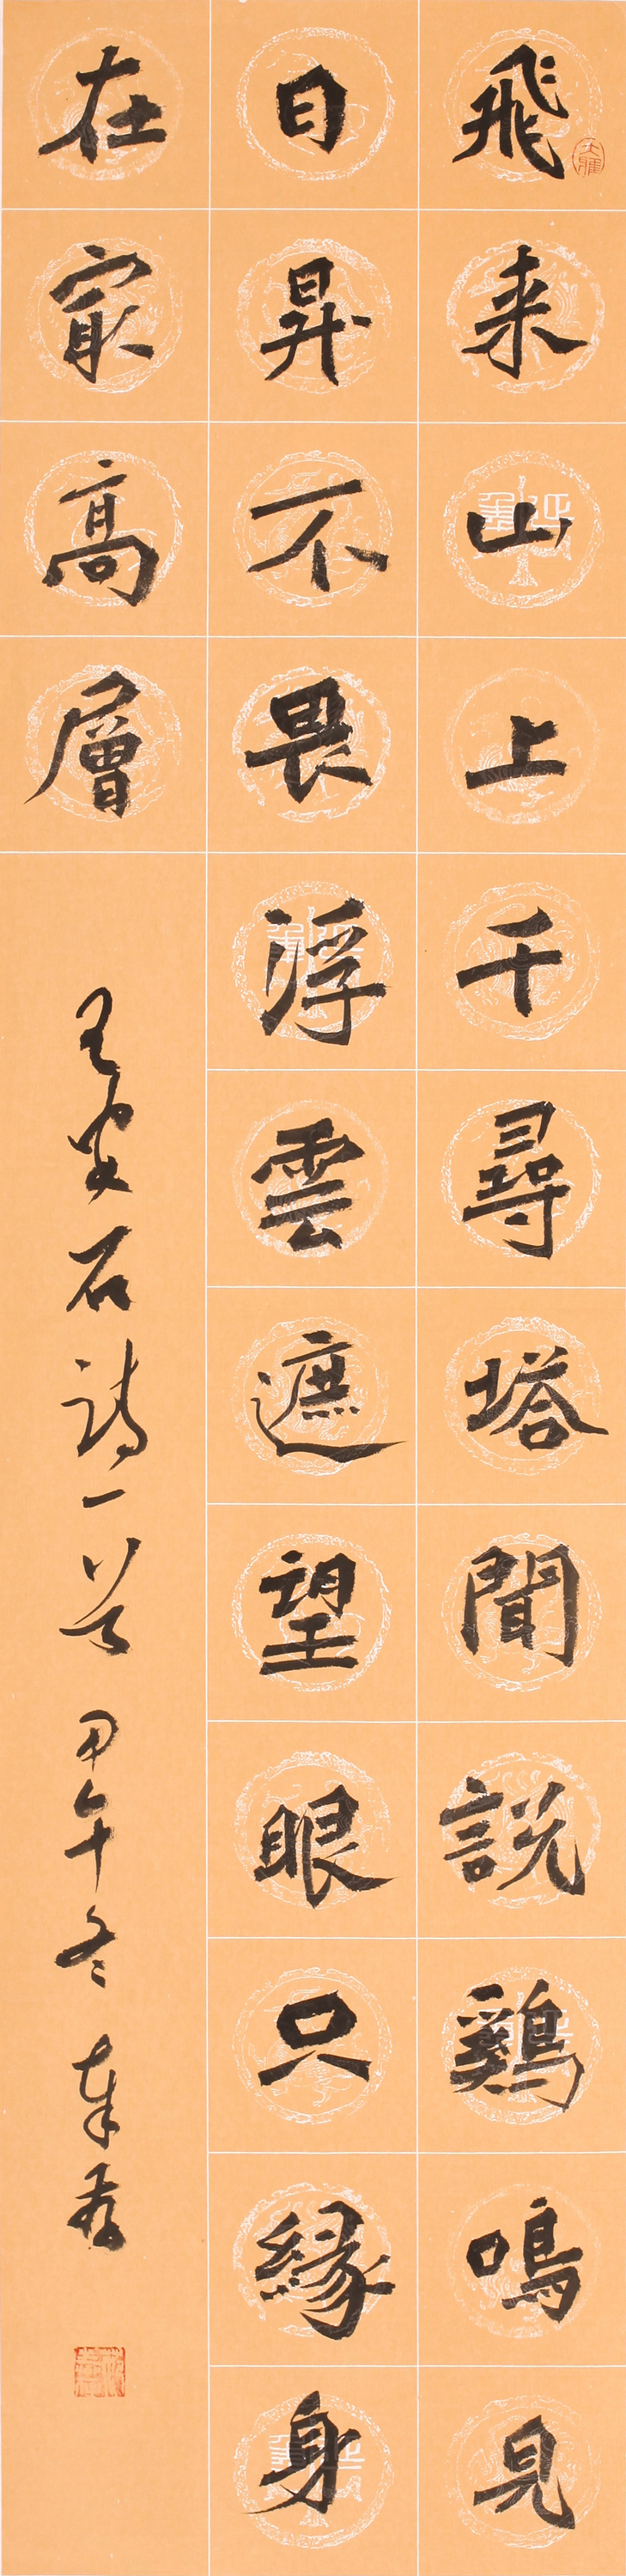 飛来山上千尋塔聞說鷄鳴見
日昇不畏浮雲遮望眼只緣身
在最高層
王安石詩一首 甲午冬